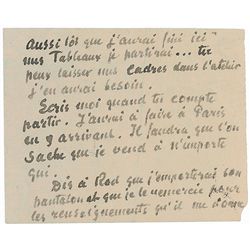 aussi tôt que j'aurai fini ici
mes Tableaux je partirai... tu
peux laisser mes Cadres dans l'atelier
j'en aurai besoin.
Ecris moi quand tu compte
partir. J'aurai à faire à Paris
en y arrivant. Il faudra que l'on
Sache que je vend à n'importe
qui.
Dis à Rod que j'emporterai son
pantalon et que je le remercie pour
les renseignements qu'il me donne